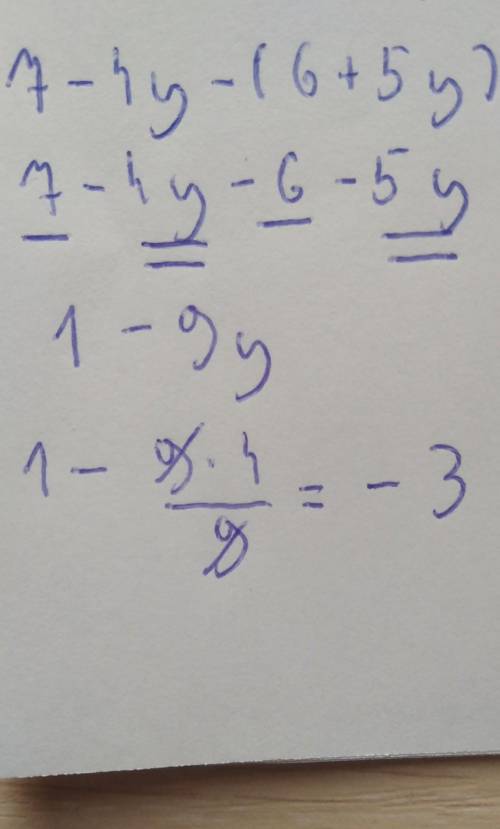 7 - 4y - (6 + 5y)
7 - 4y - 6 - 5y
1 - 9y
1 - \frac{9 \cdot 4}{9} = -3